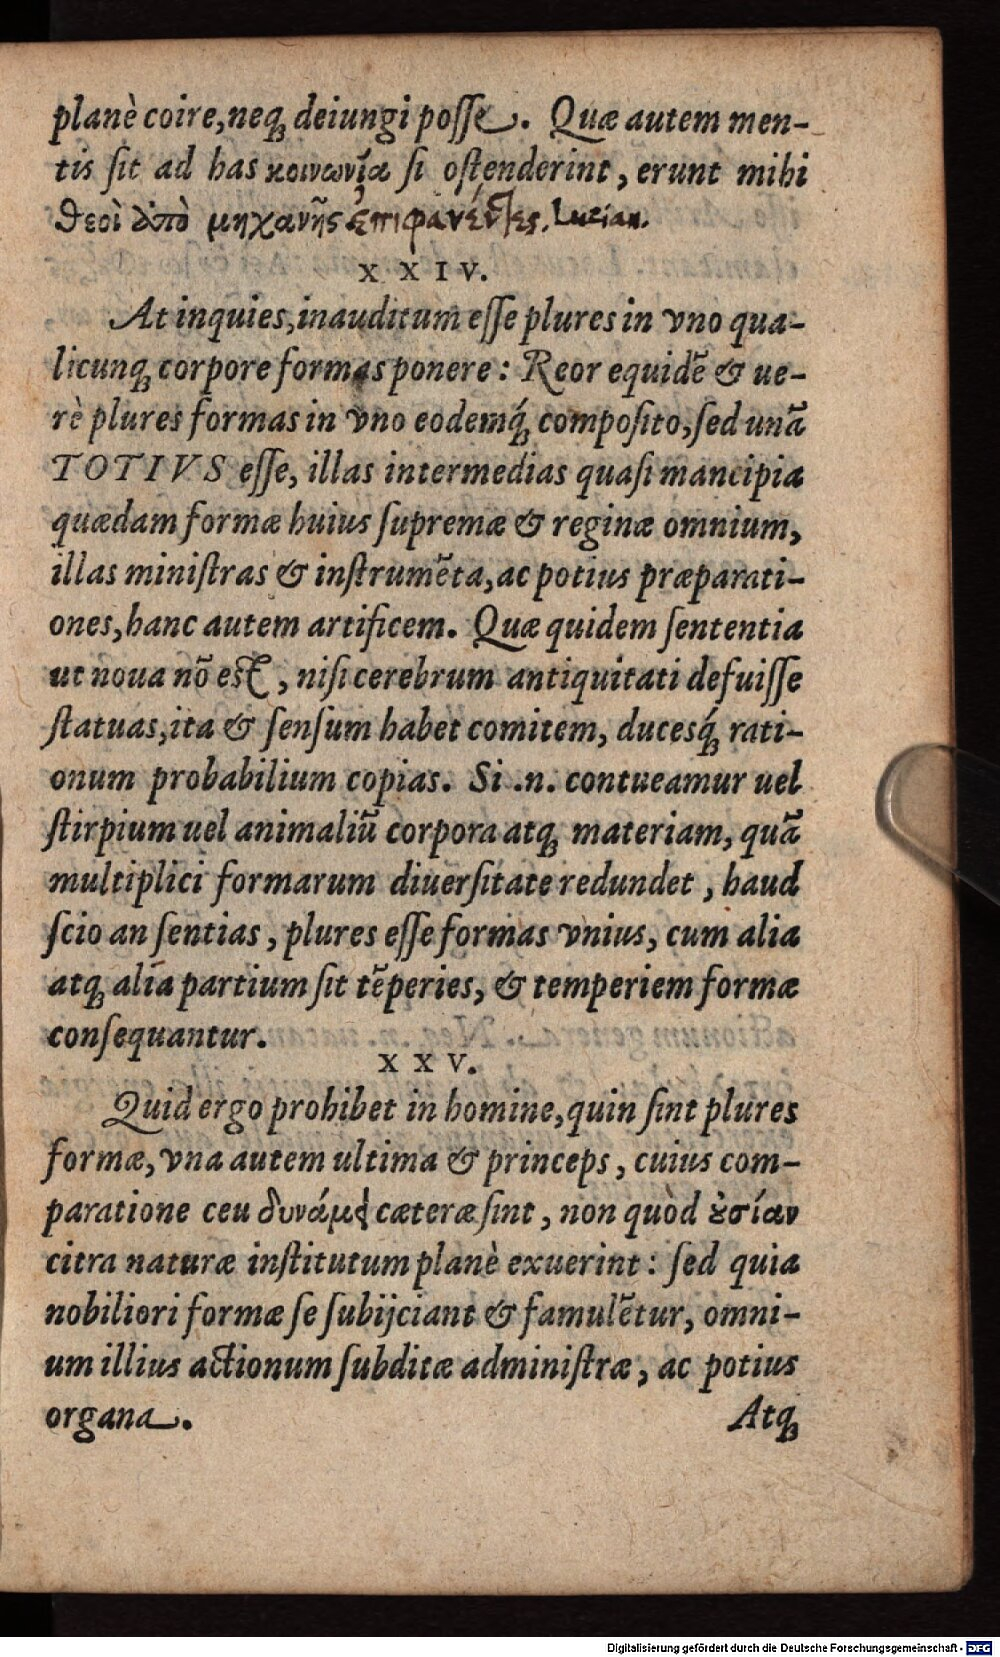 planè coire, neq́; deiungi posse. Quæ autem men-
tis sit ad has κοινωνία si ostenderint, erunt mihi
θεοὶ ἀπὸ μηχανῆς ἐπιφανέντες. Lucian.
XXIV.
At inquies, inauditum esse plures in vno qua-
licunq; corpore formas ponere: Reor equidē & ue-
rè plures formas in vno eodemq́; composito, sed unā
TOTIVS esse, illas intermedias quasi mancipia
quædam formæ huius supremæ & reginæ omnium,
illas ministras & instrumēta, ac potius præparati-
ones, hanc autem artificem. Quæ quidem sententia
ut noua nō est, nisi cerebrum antiquitati defuisse
statuas, ita & sensum habet comitem, ducesq́; rati-
onum probabilium copias. Si .n. contueamur uel
stirpium uel animaliū corpora atq; materiam, quā
multiplici formarum diuersitate redundet, haud
scio an sentias, plures esse formas vnius, cum alia
atq; alia partium sit tēperies, & temperiem formæ
consequantur.
XXV.
Quid ergo prohibet in homine, quin sint plures
formæ, vna autem ultima & princeps, cuius com-
paratione ceu δυνάμει cæteræ sint, non quòd ȣσίαν
citra naturæ institutum planè exuerint: sed quia
nobiliori formæ se subijciant & famulētur, omni-
um illius actionum subditæ administræ, ac potius
organa. Atq;
Digitalisierung gefördert durch die Deutsche Forschungsgemeinschaft - DFG